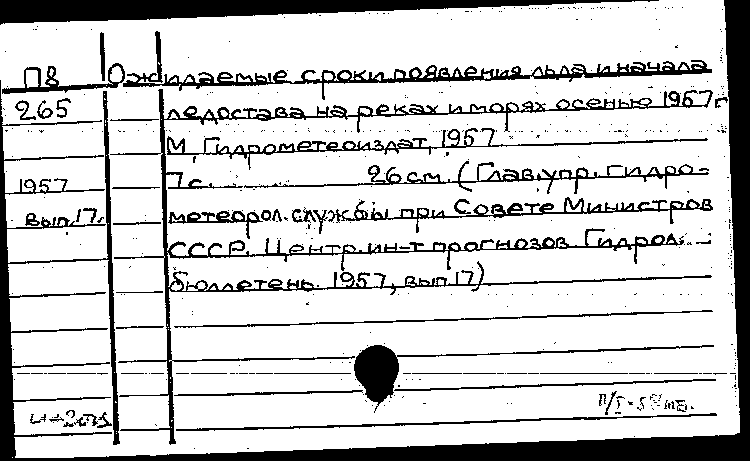 П8 Ожидаемые сроки появления льда и начала
265 ледостава на реках и морях осенью 1957г
М, Гидрометеоиздат, 1957
1957 7с. 26см. (Глав.упр. гидро-
вып.17. метеорол. службы при Совете Министров
СССР. Центр. ин-т прогнозов. Гидрол.
бюллетень. 1957, вып 17)